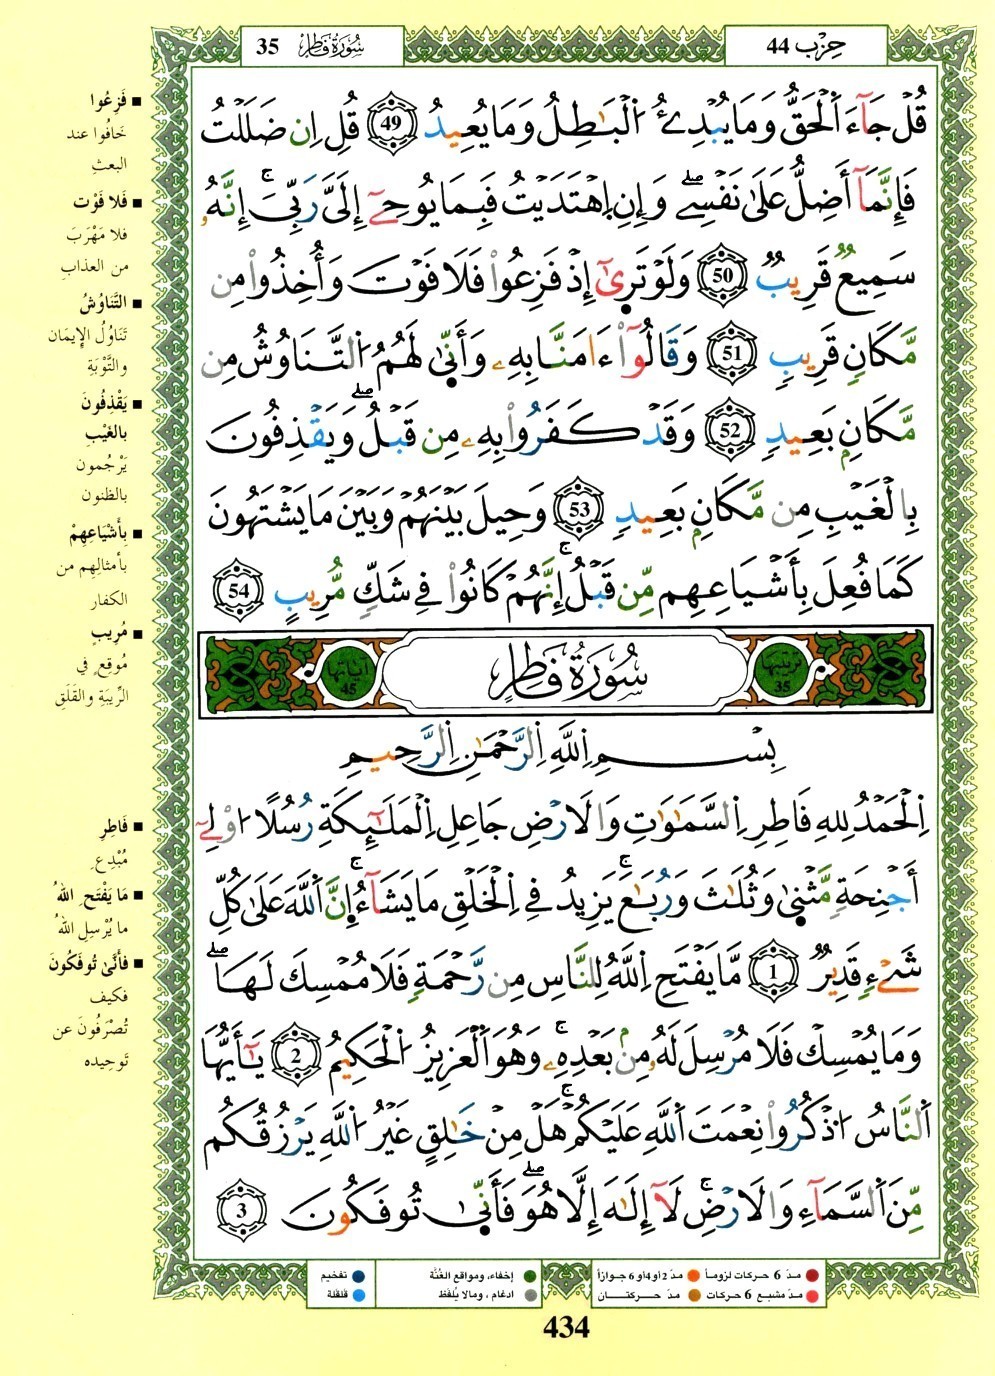 حِزْب 44
سُورَةُ فَاطِر 35
قُلْ جَآءَ اَ۬لْحَقُّ وَمَا يُبْدِئُ اُ۬لْبَٰطِلُ وَمَا يُعِيدُ 49 قُلِ اِن ضَلَلْتُ
فَإِنَّمَآ أَضِلُّ عَلَىٰ نَفْسِےۖ وَإِنِ اِ۪هْتَدَيْتُ فَبِمَا يُوحِےٓ إِلَىَّ رَبِّىَۚ إِنَّهُۥ
سَمِيعٌ قَرِيبٌ 50 وَلَوْ تَرَىٰٓ إِذْ فَزِعُواْ فَلَا فَوْتَ وَأُخِذُواْ مِن
مَّكَانٍ قَرِيبٍ 51 وَقَالُوٓاْ ءَامَنَّا بِهِۦ وَأَنّ۪ىٰ لَهُمُ اُ۬لتَّنَاوُشُ مِن
مَّكَانٍۢ بَعِيدٍ 52 وَقَدْ كَفَرُواْ بِهِۦ مِن قَبْلُۖ وَيَقْذِفُونَ
بِالْغَيْبِ مِن مَّكَانٍۢ بَعِيدٍ 53 وَحِيلَ بَيْنَهُمْ وَبَيْنَ مَا يَشْتَهُونَ
كَمَا فُعِلَ بِأَشْيَاعِهِم مِّن قَبْلُۚ إِنَّهُمْ كَانُواْ فِے شَكٍّ مُّرِيبٍ 54
ترتيبها 35
سُورَةُ فَاطِرٍ
آياتها 45
بِسْمِ اِ۬للَّهِ اِ۬لرَّحْمَٰنِ اِ۬لرَّحِيمِ
اِ۬لْحَمْدُ لِلهِ فَاطِرِ اِ۬لسَّمَٰوَٰتِ وَالَارْضِ جَاعِلِ اِ۬لْمَلَٰٓئِكَةِ رُسُلًا ا۟وْلِےٓ
أَجْنِحَةٍ مَّثْنَىٰ وَثُلَٰثَ وَرُبَٰعَۚ يَزِيدُ فِے اِ۬لْخَلْقِ مَا يَشَآءُۚ إِنَّ اَ۬للَّهَ عَلَىٰ كُلِّ
شَےْءٍ قَدِيرٌ 1 مَّا يَفْتَحِ اِ۬للَّهُ لِلنَّاسِ مِن رَّحْمَةٍ فَلَا مُمْسِكَ لَهَاۖ
وَمَا يُمْسِكْ فَلَا مُرْسِلَ لَهُۥ مِنۢ بَعْدِهِۦۚ وَهُوَ اَ۬لْعَزِيزُ اُ۬لْحَكِيمُ 2 يَٰٓأَيُّهَا
اَ۬لنَّاسُ اُ۟ذْكُرُواْ نِعْمَتَ اَ۬للَّهِ عَلَيْكُمْۚ هَلْ مِنْ خَٰلِقٍ غَيْرُ اُ۬للَّهِ يَرْزُقُكُم
مِّنَ اَ۬لسَّمَآءِ وَالَارْضِۚ لَآ إِلَٰهَ إِلَّا هُوَۖ فَأَنّ۪ىٰ تُوفَكُونَ 3
فَزِعُوا
خَافُوا عند
البعثِ
فَلا فَوْت
فلا مَهْرَبَ
من العذاب
التَّنَاوُشُ
تَنَاوُلُ الإِيمَان
والتَّوْبَةِ
يَقْذِفُونَ
بالغَيْب
يَرْجُمون
بالظنون
بِأَشْيَاعِهِمْ
بأمثالِهِم من
الكفار
مُرِيبٍ
مُوقِعٍ في
الرِّيبَةِ والقَلَقِ
فَاطِرِ
مُبْدِعِ
مَا يَفْتَحِ اللهُ
ما يُرْسِلِ اللهُ
فَأَنَّىٰ تُوفَكُونَ
فكيف
تُصْرَفُونَ عن
تَوحيده
مدّ 6 حركات لزوماً
مدّ 2 أو 4 أو 6 جوازاً
إخفاء، ومواقع الغُنَّة
تفخيم
مدّ مشبع 6 حركات
مدّ حركتان
ادغام، ومالا يُلفَظ
قلقلة
434